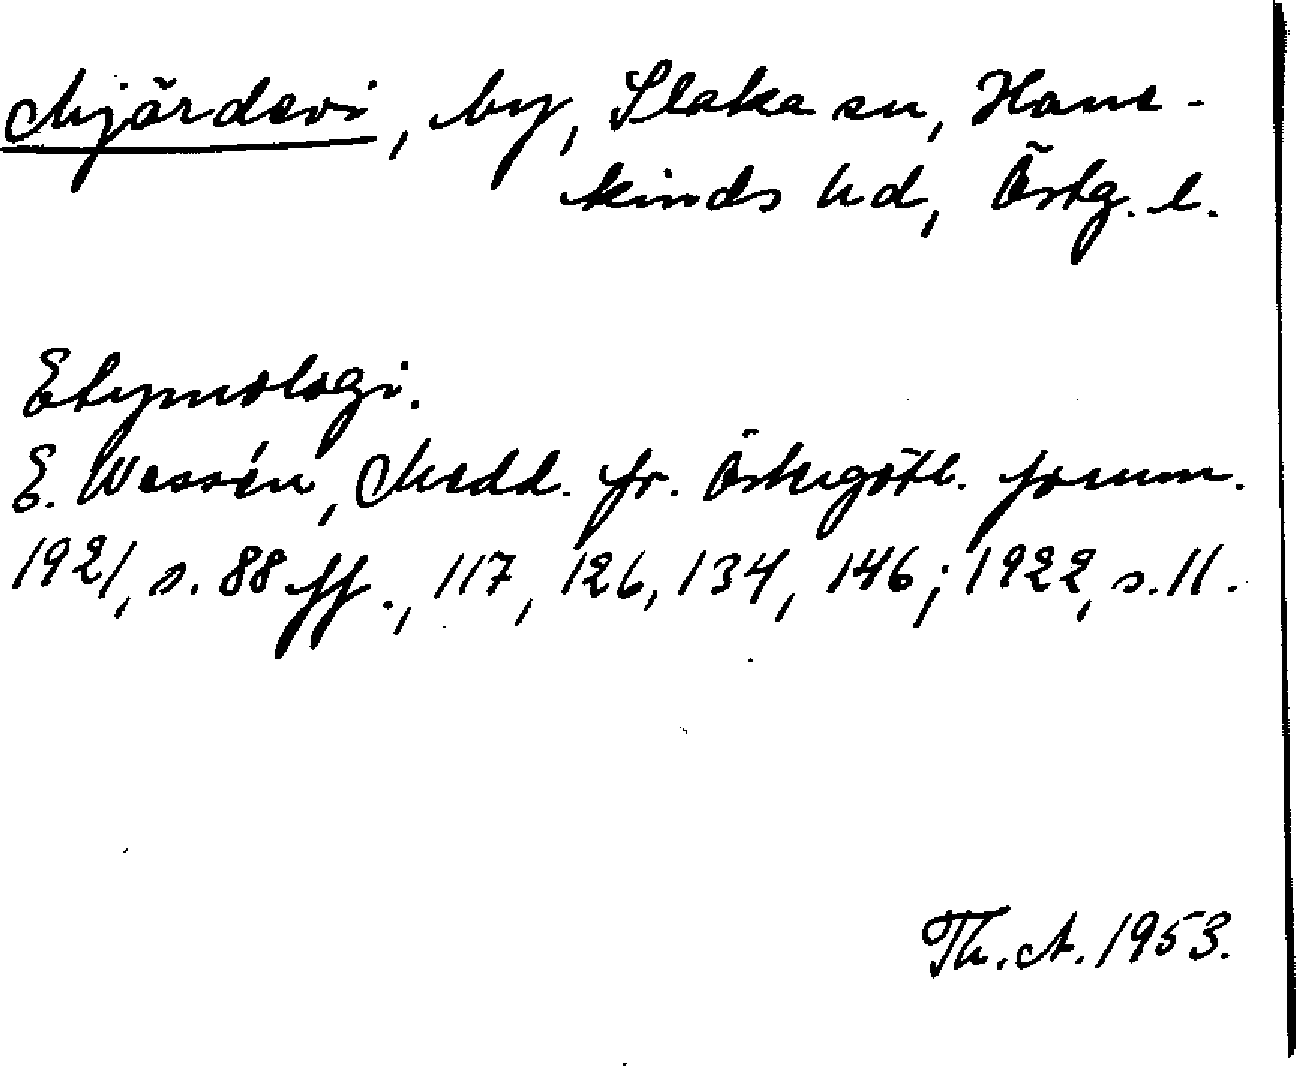 Mjärdevi, by, Slaka sn, Hane-
kinds hd, Östg. l.
Etymologi.
E. Wessén, Medd. fr. Östergötl. fornm.
1921, s. 88 ff., 117, 126, 134, 146; 1922, s. 11.
Th. A. 1953.